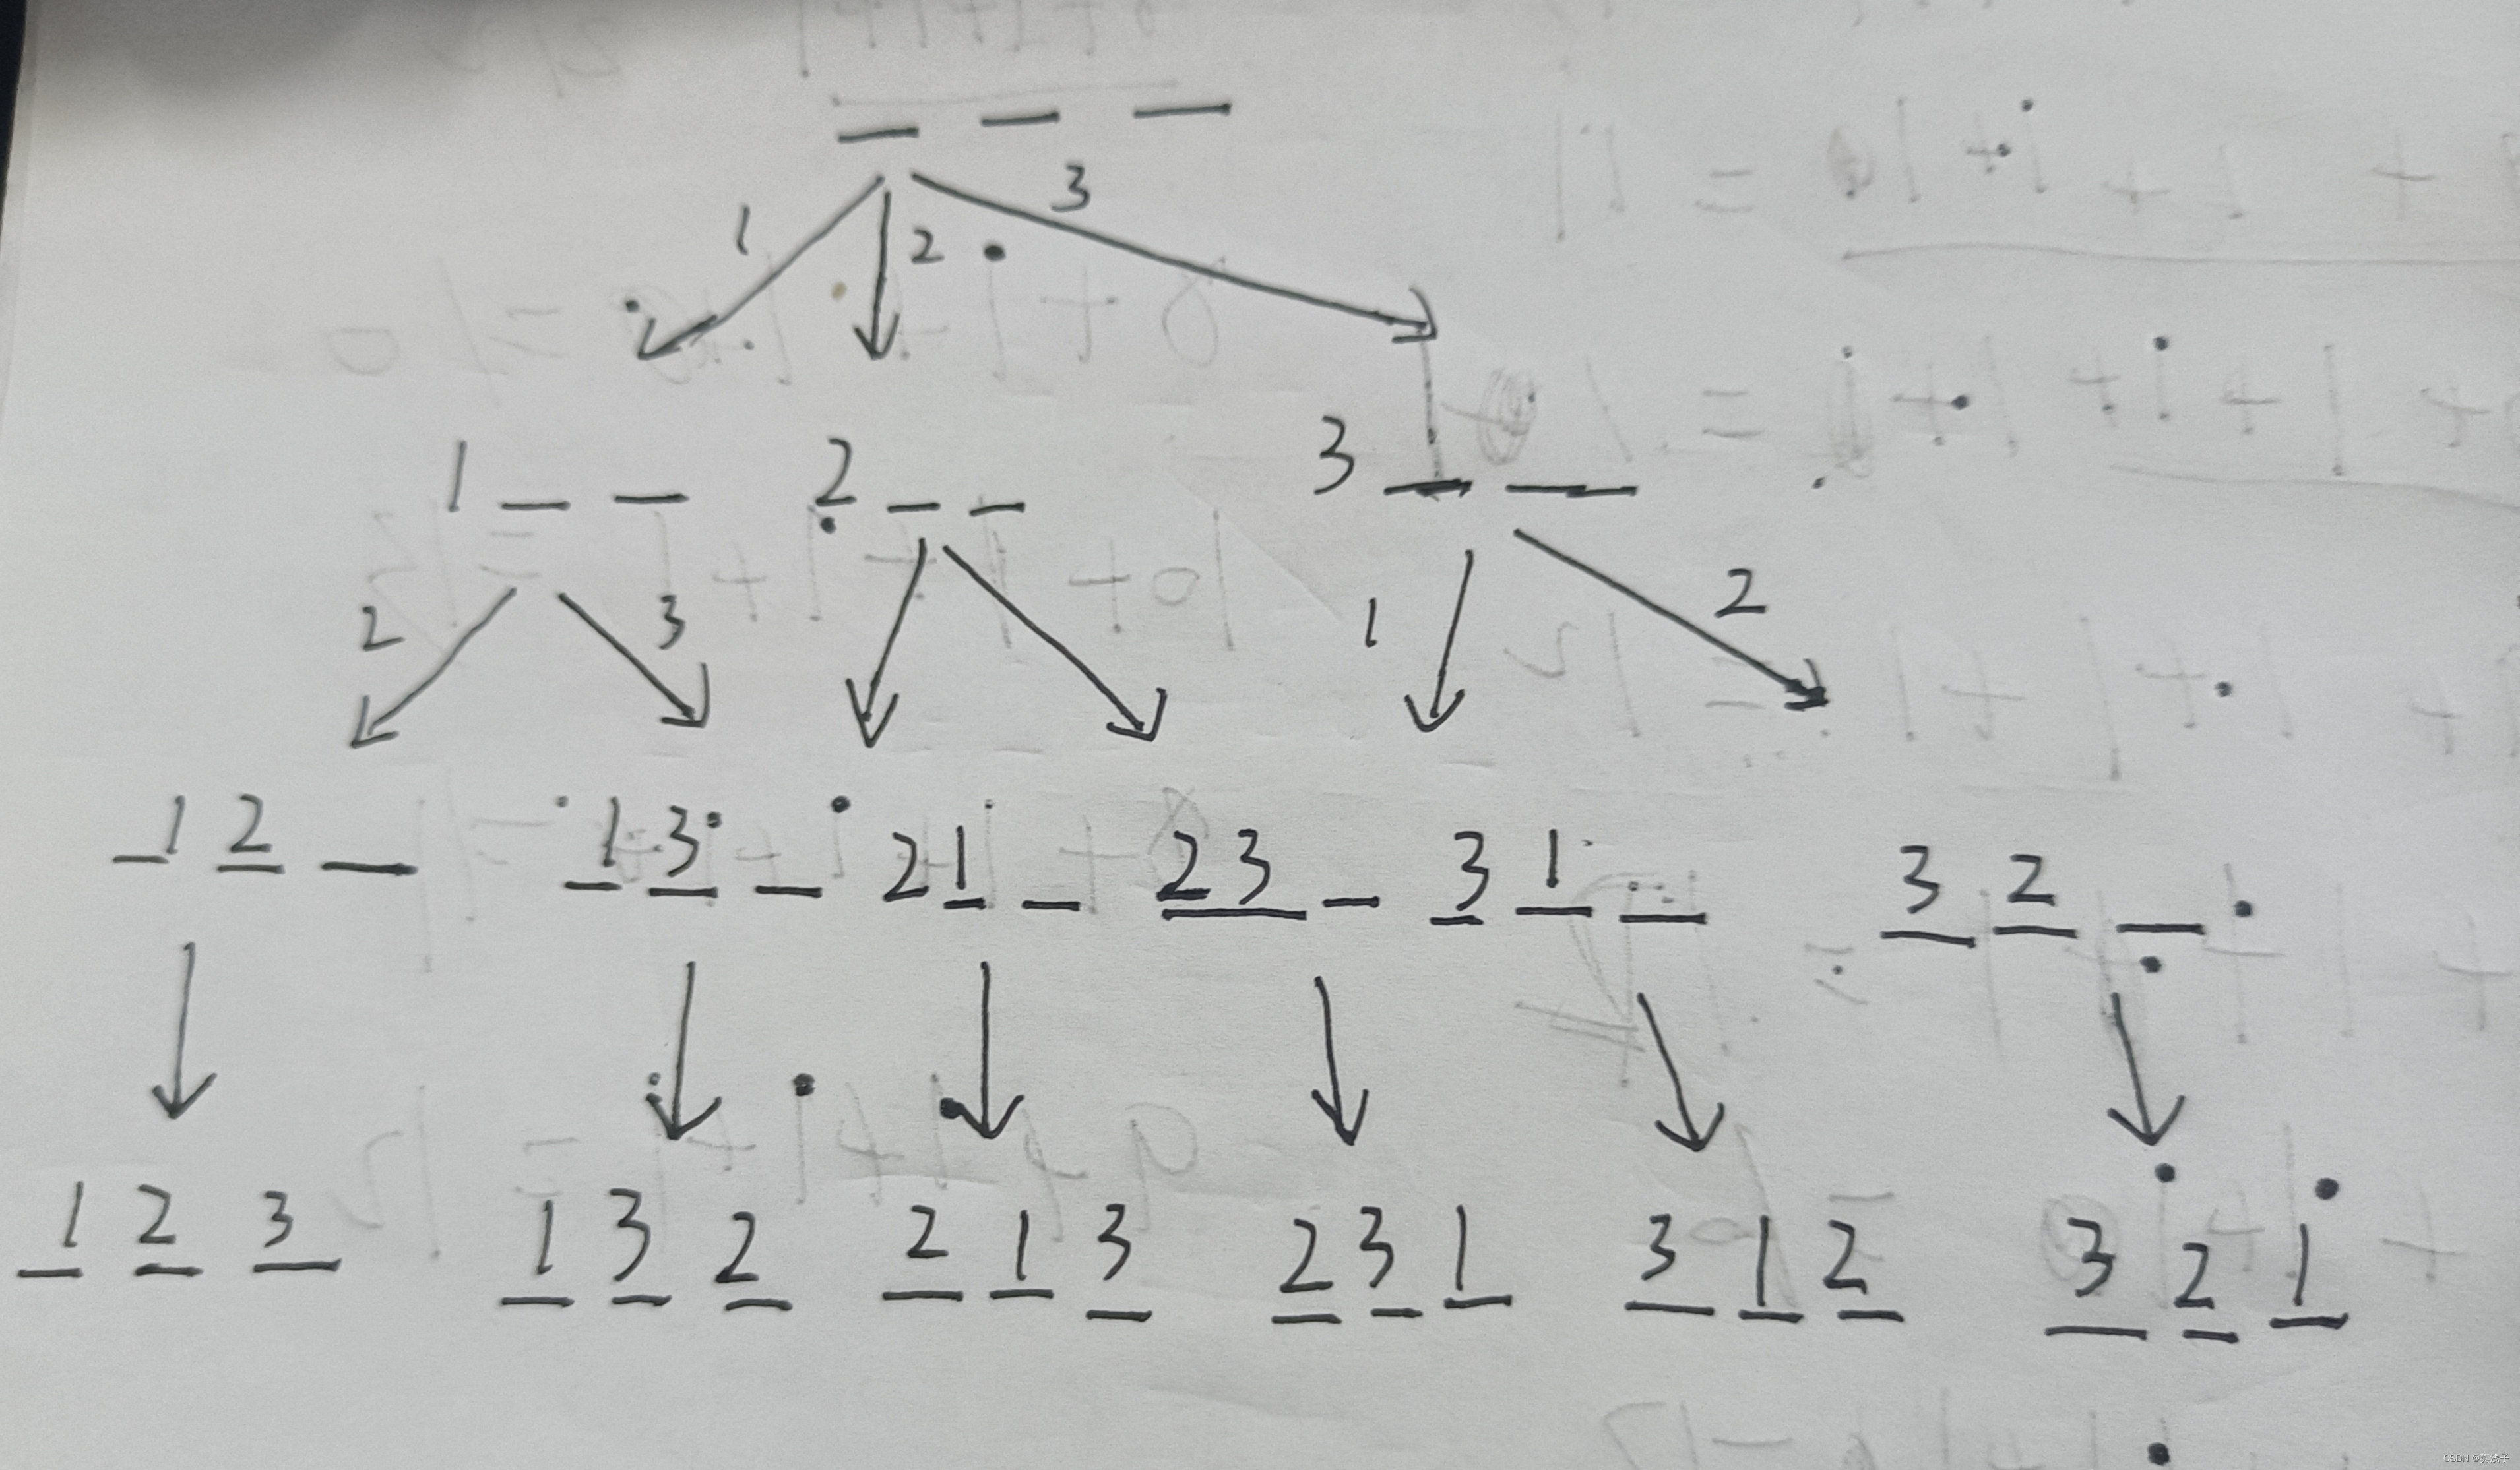 _ _ _
1 2 3
1 _ _ 2 _ _ 3 _ _
2 3 1 2
1 2 _ 1 3 _ 2 1 _ 2 3 _ 3 1 _ 3 2 _
1 2 3 1 3 2 2 1 3 2 3 1 3 1 2 3 2 1